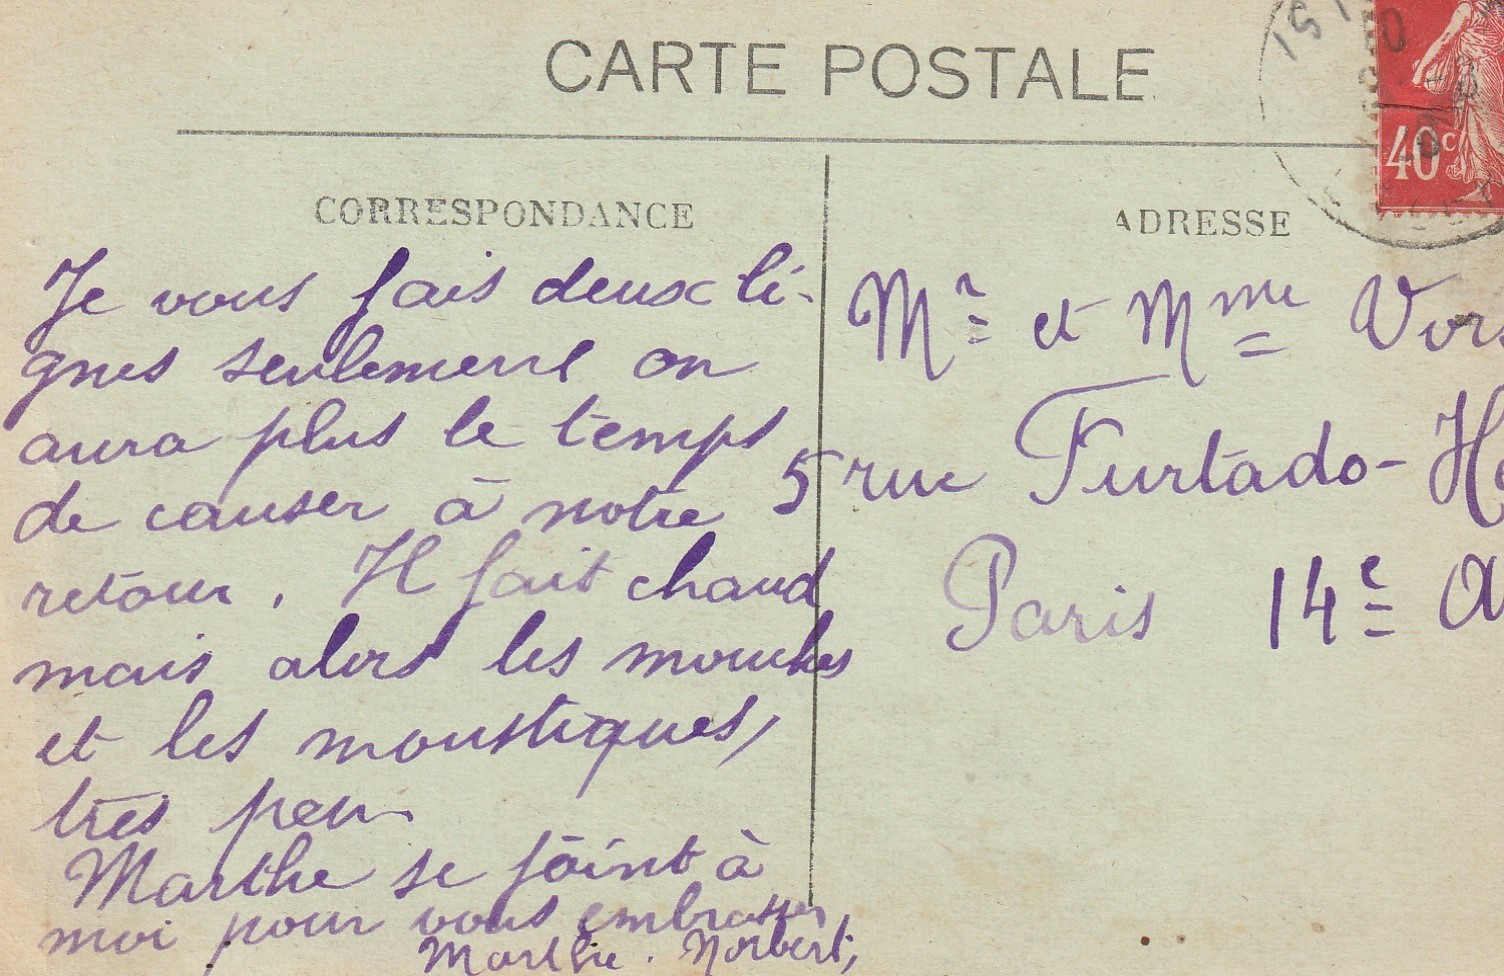 CARTE POSTALE
CORRESPONDANCE
ADRESSE
40c
Je vous fais deux li-
gnes seulement on
aura plus le temps
de causer à notre
retour. Il fait chaud
mais alors les mouches
et les moustiques,
très peu.
Marthe se joint à
moi pour vous embrasser
Marthe. Norbert,
Mr et Mme
5 rue Furtado-
Paris 14e